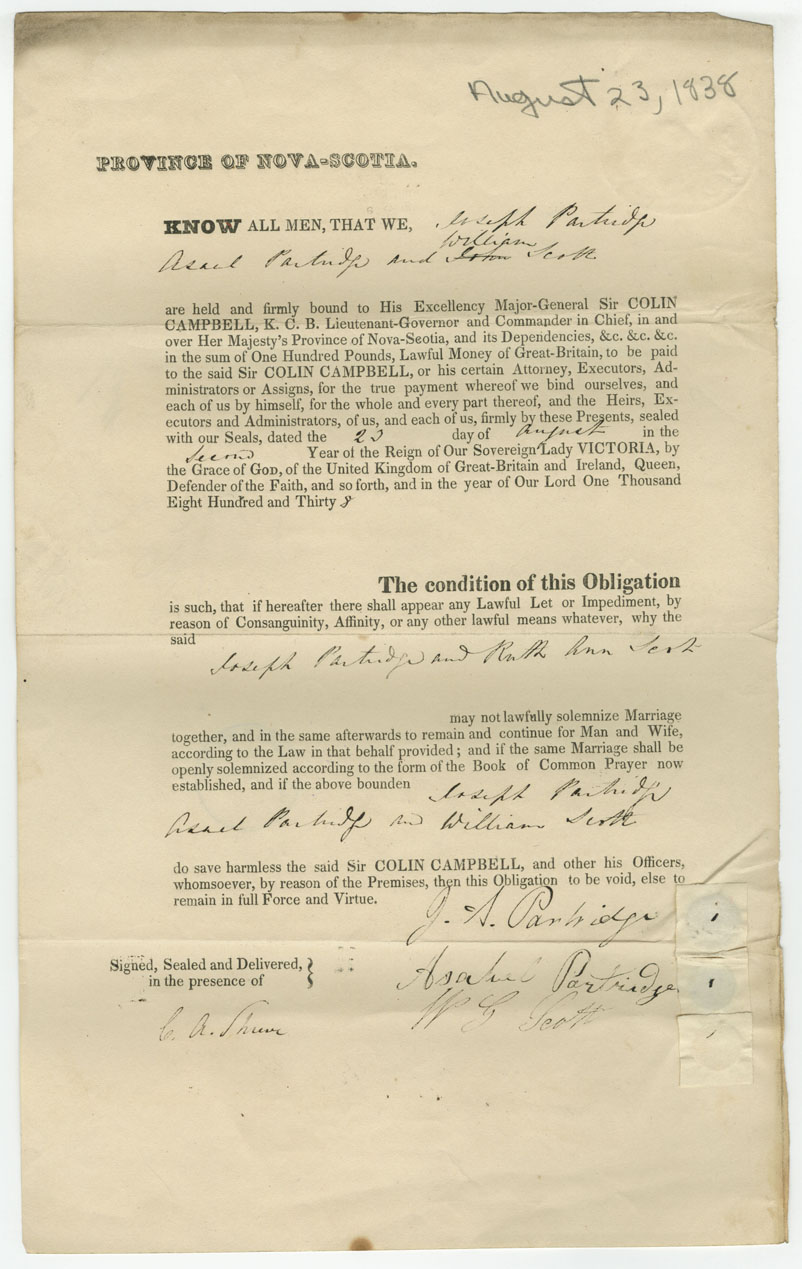 August 23, 1838
PROVINCE OF NOVA-SCOTIA.
KNOW ALL MEN, THAT WE, Joseph Partridge
William
Asael Partridge and John Scott
are held and firmly bound to His Excellency Major-General Sir COLIN
CAMPBELL, K. C. B. Lieutenant-Governor and Commander in Chief, in and
over Her Majesty's Province of Nova-Scotia, and its Dependencies, &c. &c. &c.
in the sum of One Hundred Pounds, Lawful Money of Great-Britain, to be paid
to the said Sir COLIN CAMPBELL, or his certain Attorney, Executors, Ad-
ministrators or Assigns, for the true payment whereof we bind ourselves, and
each of us by himself, for the whole and every part thereof, and the Heirs, Ex-
ecutors and Administrators, of us, and each of us, firmly by these Presents, sealed
with our Seals, dated the 23 day of August in the
Second Year of the Reign of Our Sovereign Lady VICTORIA, by
the Grace of GOD, of the United Kingdom of Great-Britain and Ireland, Queen,
Defender of the Faith, and so forth, and in the year of Our Lord One Thousand
Eight Hundred and Thirty 8
The condition of this Obligation
is such, that if hereafter there shall appear any Lawful Let or Impediment, by
reason of Consanguinity, Affinity, or any other lawful means whatever, why the
said
Joseph Partridge and Ruth Ann Scott
may not lawfully solemnize Marriage
together, and in the same afterwards to remain and continue for Man and Wife,
according to the Law in that behalf provided; and if the same Marriage shall be
openly solemnized according to the form of the Book of Common Prayer now
established, and if the above bounden Joseph Partridge
Asael Partridge and William Scott
do save harmless the said Sir COLIN CAMPBELL, and other his Officers,
whomsoever, by reason of the Premises, then this Obligation to be void, else to
remain in full Force and Virtue.
J. A. Partridge
Signed, Sealed and Delivered,
in the presence of
Asahel Partridge
W G Scott
C. A.